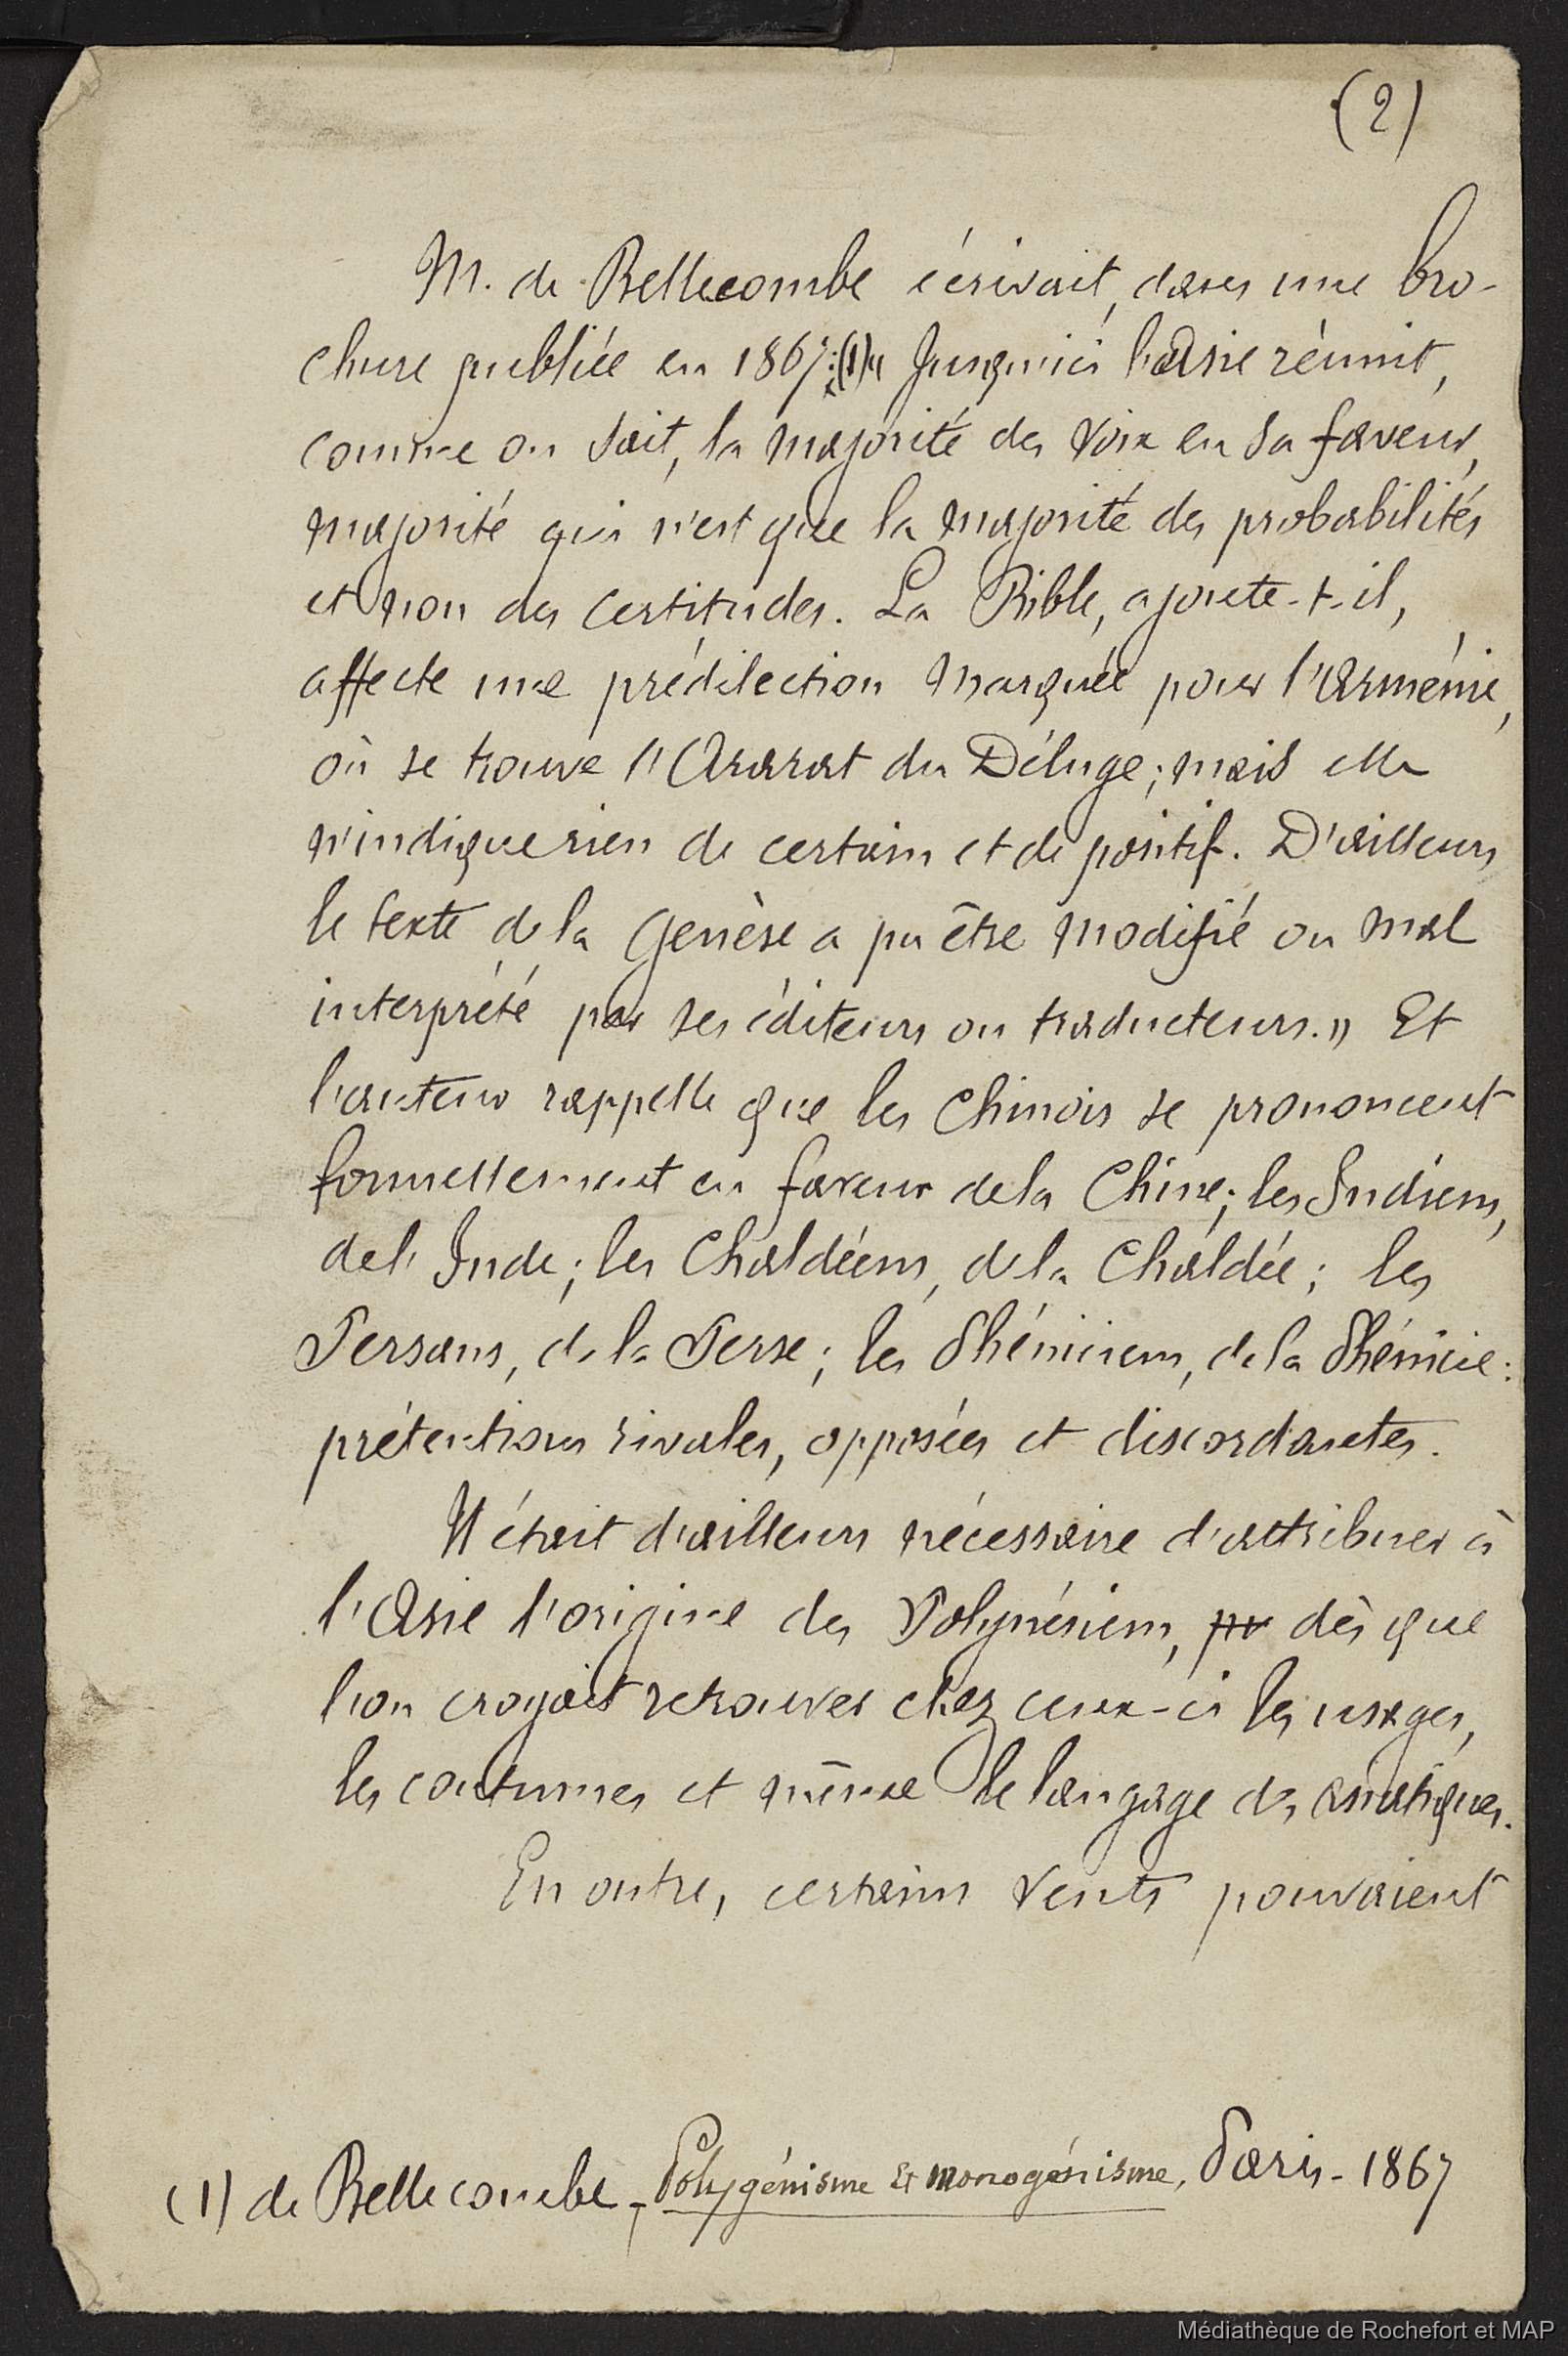 (2)
M. de Bellecombe écrivait, dans une bro-
chure publiée en 1867:(1) « Jusqu'ici l'Asie réunit,
comme on sait, la majorité des voix en sa faveur,
majorité qui n'est que la majorité des probabilités
et non des certitudes. La Bible, ajoute-t-il,
affecte une prédilection marquée pour l'Arménie,
où se trouve l'Ararat du Déluge; mais elle
n'indique rien de certain et de positif. D'ailleurs
le texte de la Genèse a pu être modifié ou mal
interprété par ses éditeurs ou traducteurs. » Et
l'auteur rappelle que les Chinois se prononcent
formellement en faveur de la Chine; les Indiens,
de l'Inde; les Chaldéens, de la Chaldée; les
Persans, de la Perse; les Phéniciens, de la Phénicie:
prétentions rivales, opposées et discordantes.
Il était d'ailleurs nécessaire d'attribuer à
l'Asie l'origine des Polynésiens, pu dès que
l'on croyait retrouver chez ceux-ci les usages,
les coutumes et même le langage des asiatiques.
En outre, certains vents pouvaient
(1) de Bellecombe - Polygénisme et monogénisme, Paris - 1867
Médiathèque de Rochefort et MAP